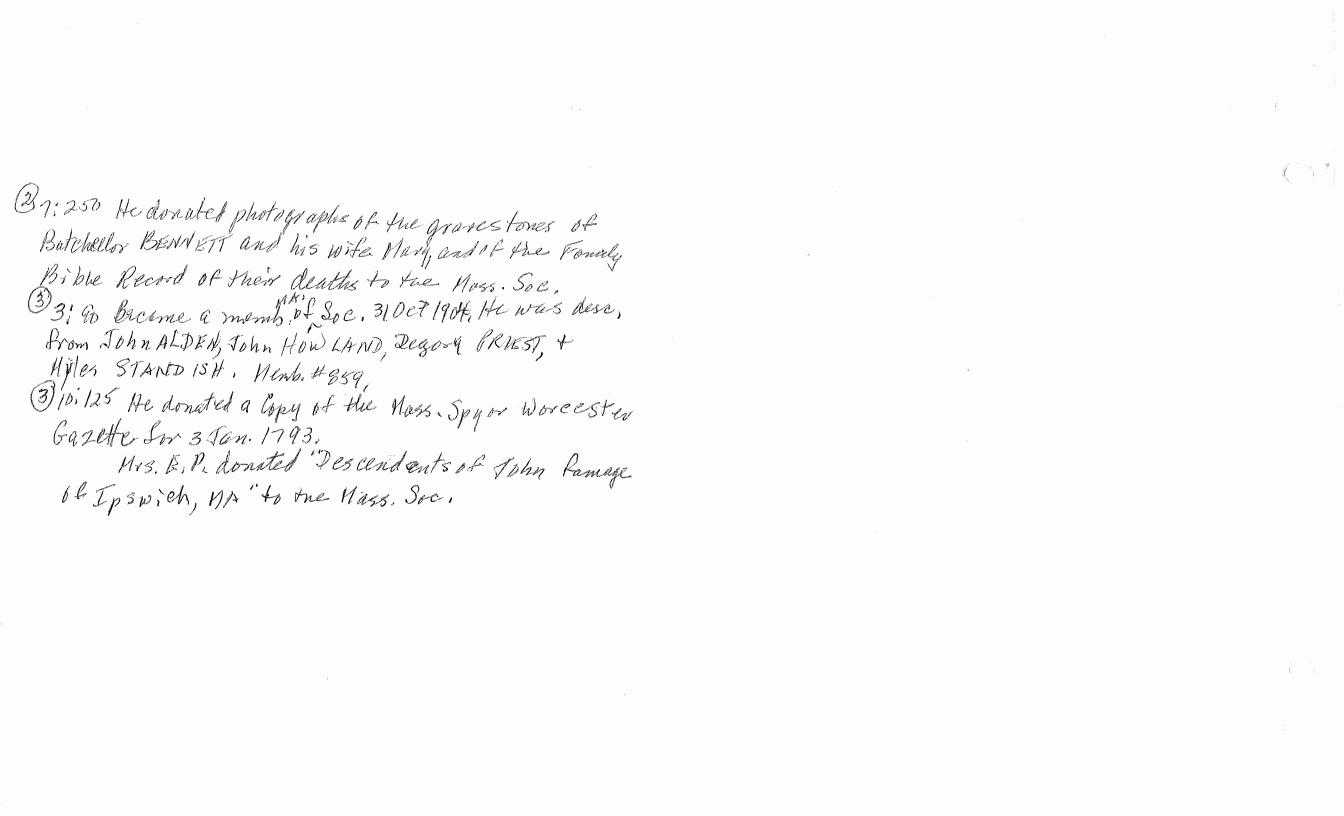 ② 7:250 He donated photographs of the gravestones of
Batchellor BENNETT and his wife Mary, and of the Family
Bible Record of their deaths to the Mass. Soc.
③ 3:90 Became a memb. of MA. Soc. 31 Oct 1904. He was desc.
from John ALDEN, John HOWLAND, Degory PRIEST, +
Myles STANDISH. Memb. #859.
③ 10:125 He donated a Copy of the Mass. Spy or Worcester
Gazette for 3 Jan. 1793.
Mrs. E.P. donated "Descendents of John Ramage
of Ipswich, MA" to the Mass. Soc.